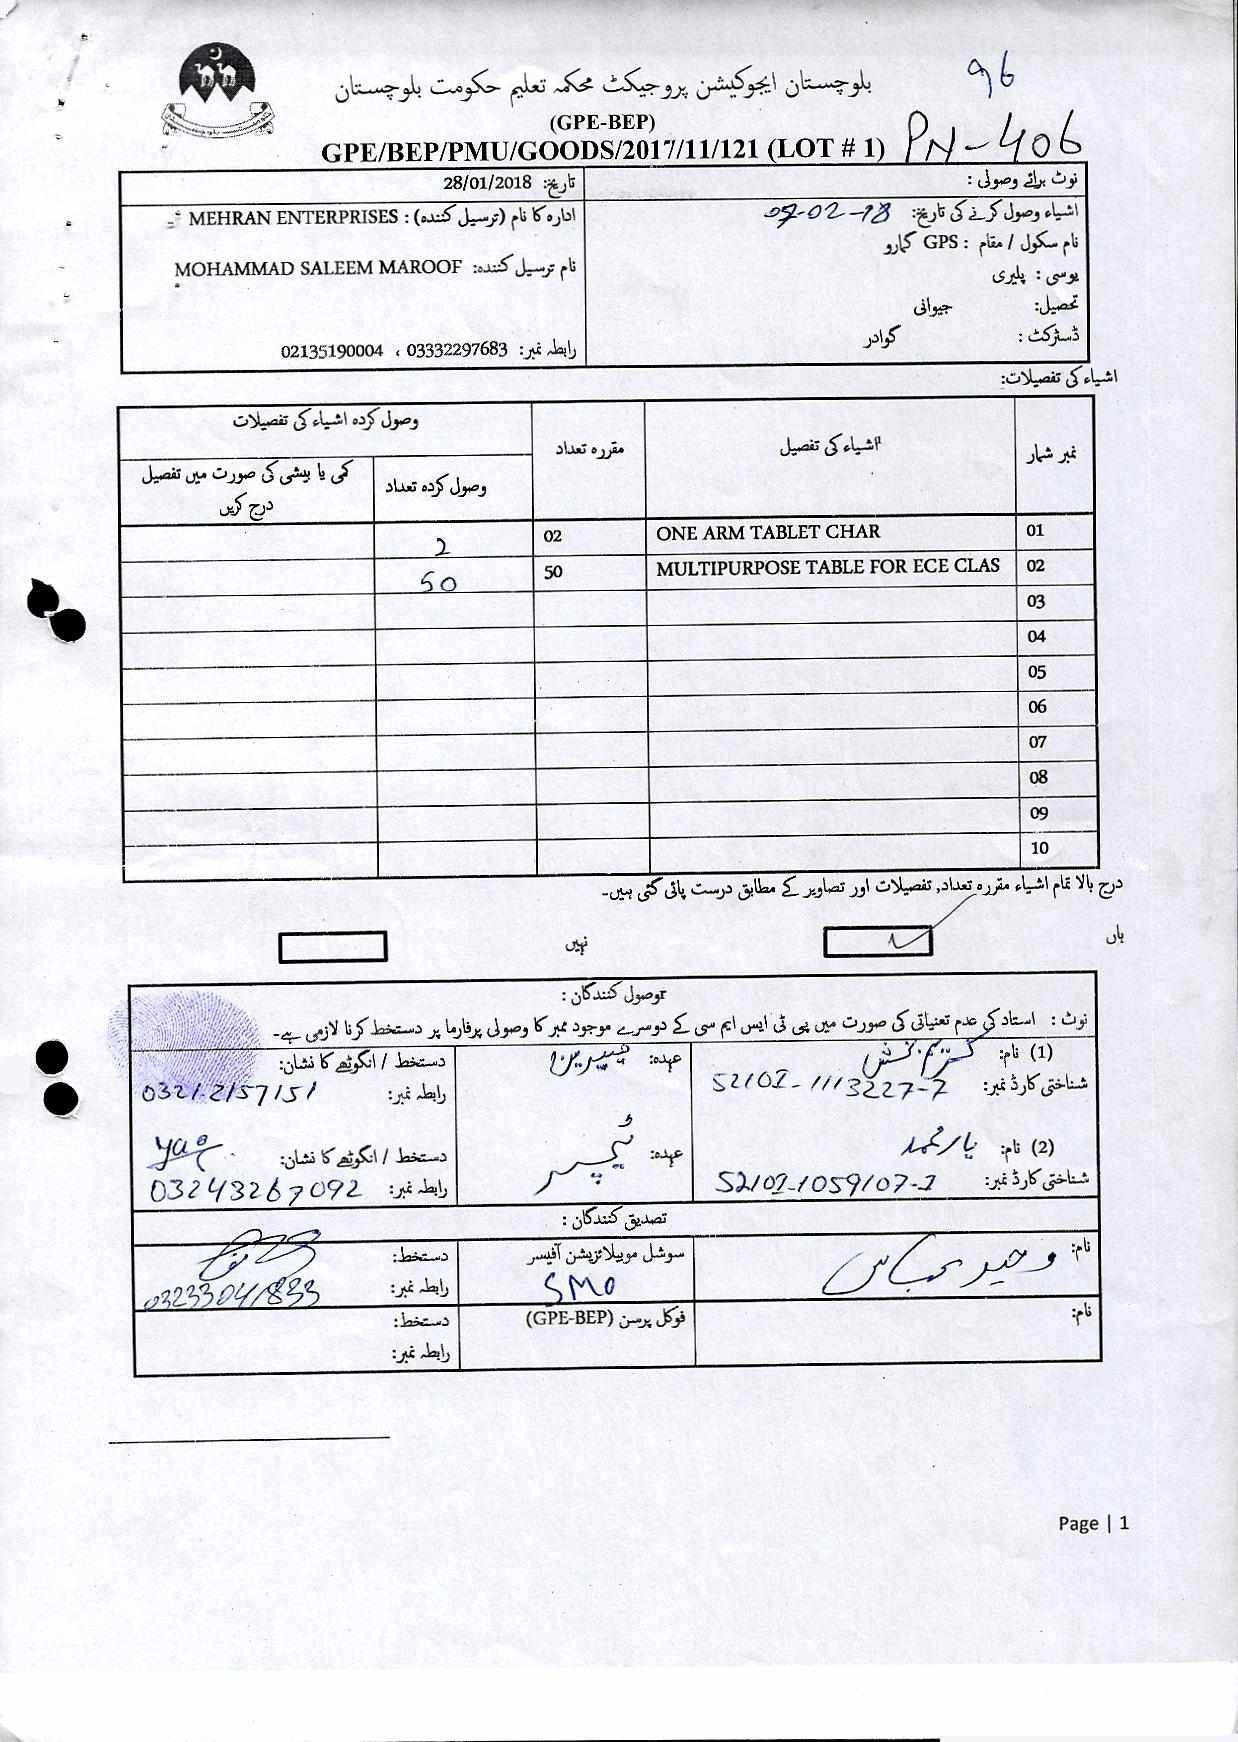 96
بلوچستان ایجوکیشن پروجیکٹ محکمہ تعلیم حکومت بلوچستان
(GPE-BEP)
GPE/BEP/PMU/GOODS/2017/11/121 (LOT # 1) PN-406
نوٹ برائے وصولی :
تاریخ: 28/01/2018
اشیاء وصول کرنے کی تاریخ: 07-02-18
نام سکول / مقام : GPS گمارو
یوسی : پلیری
تحصیل: جیوانی
ڈسٹرکٹ : گوادر
ادارہ کا نام (ترسیل کنندہ) : MEHRAN ENTERPRISES
نام ترسیل کنندہ: MOHAMMAD SALEEM MAROOF
رابطہ نمبر: 03332297683 ، 02135190004
اشیاء کی تفصیلات:
نمبر شمار اشیاء کی تفصیل مقررہ تعداد وصول کردہ اشیاء کی تفصیلات
وصول کردہ تعداد کمی یا بیشی کی صورت میں تفصیل درج کریں
01 ONE ARM TABLET CHAR 02 2
02 MULTIPURPOSE TABLE FOR ECE CLAS 50 50
03
04
05
06
07
08
09
10
درج بالا تمام اشیاء مقررہ تعداد, تفصیلات اور تصاویر کے مطابق درست پائی گئی ہیں۔
ہاں نہیں
وصول کنندگان :
نوٹ : استاد کی عدم تعیناتی کی صورت میں پی ٹی ایس ایم سی کے دوسرے موجود ممبر کا وصولی پرفارما پر دستخط کرنا لازمی ہے۔
(1) نام: کریم بخش عہدہ: دستخط / انگوٹھے کا نشان:
شناختی کارڈ نمبر: 52101-1113227-7 رابطہ نمبر: 0321-2157151
(2) نام: یار محمد عہدہ: ٹیچر دستخط / انگوٹھے کا نشان:
شناختی کارڈ نمبر: 52101-1059107-1 رابطہ نمبر: 03243267092
تصدیق کنندگان :
نام: وحید عباس سوشل موبیلائزیشن آفیسر دستخط:
SMO رابطہ نمبر: 03233041833
نام: فوکل پرسن (GPE-BEP) دستخط:
رابطہ نمبر:
Page | 1